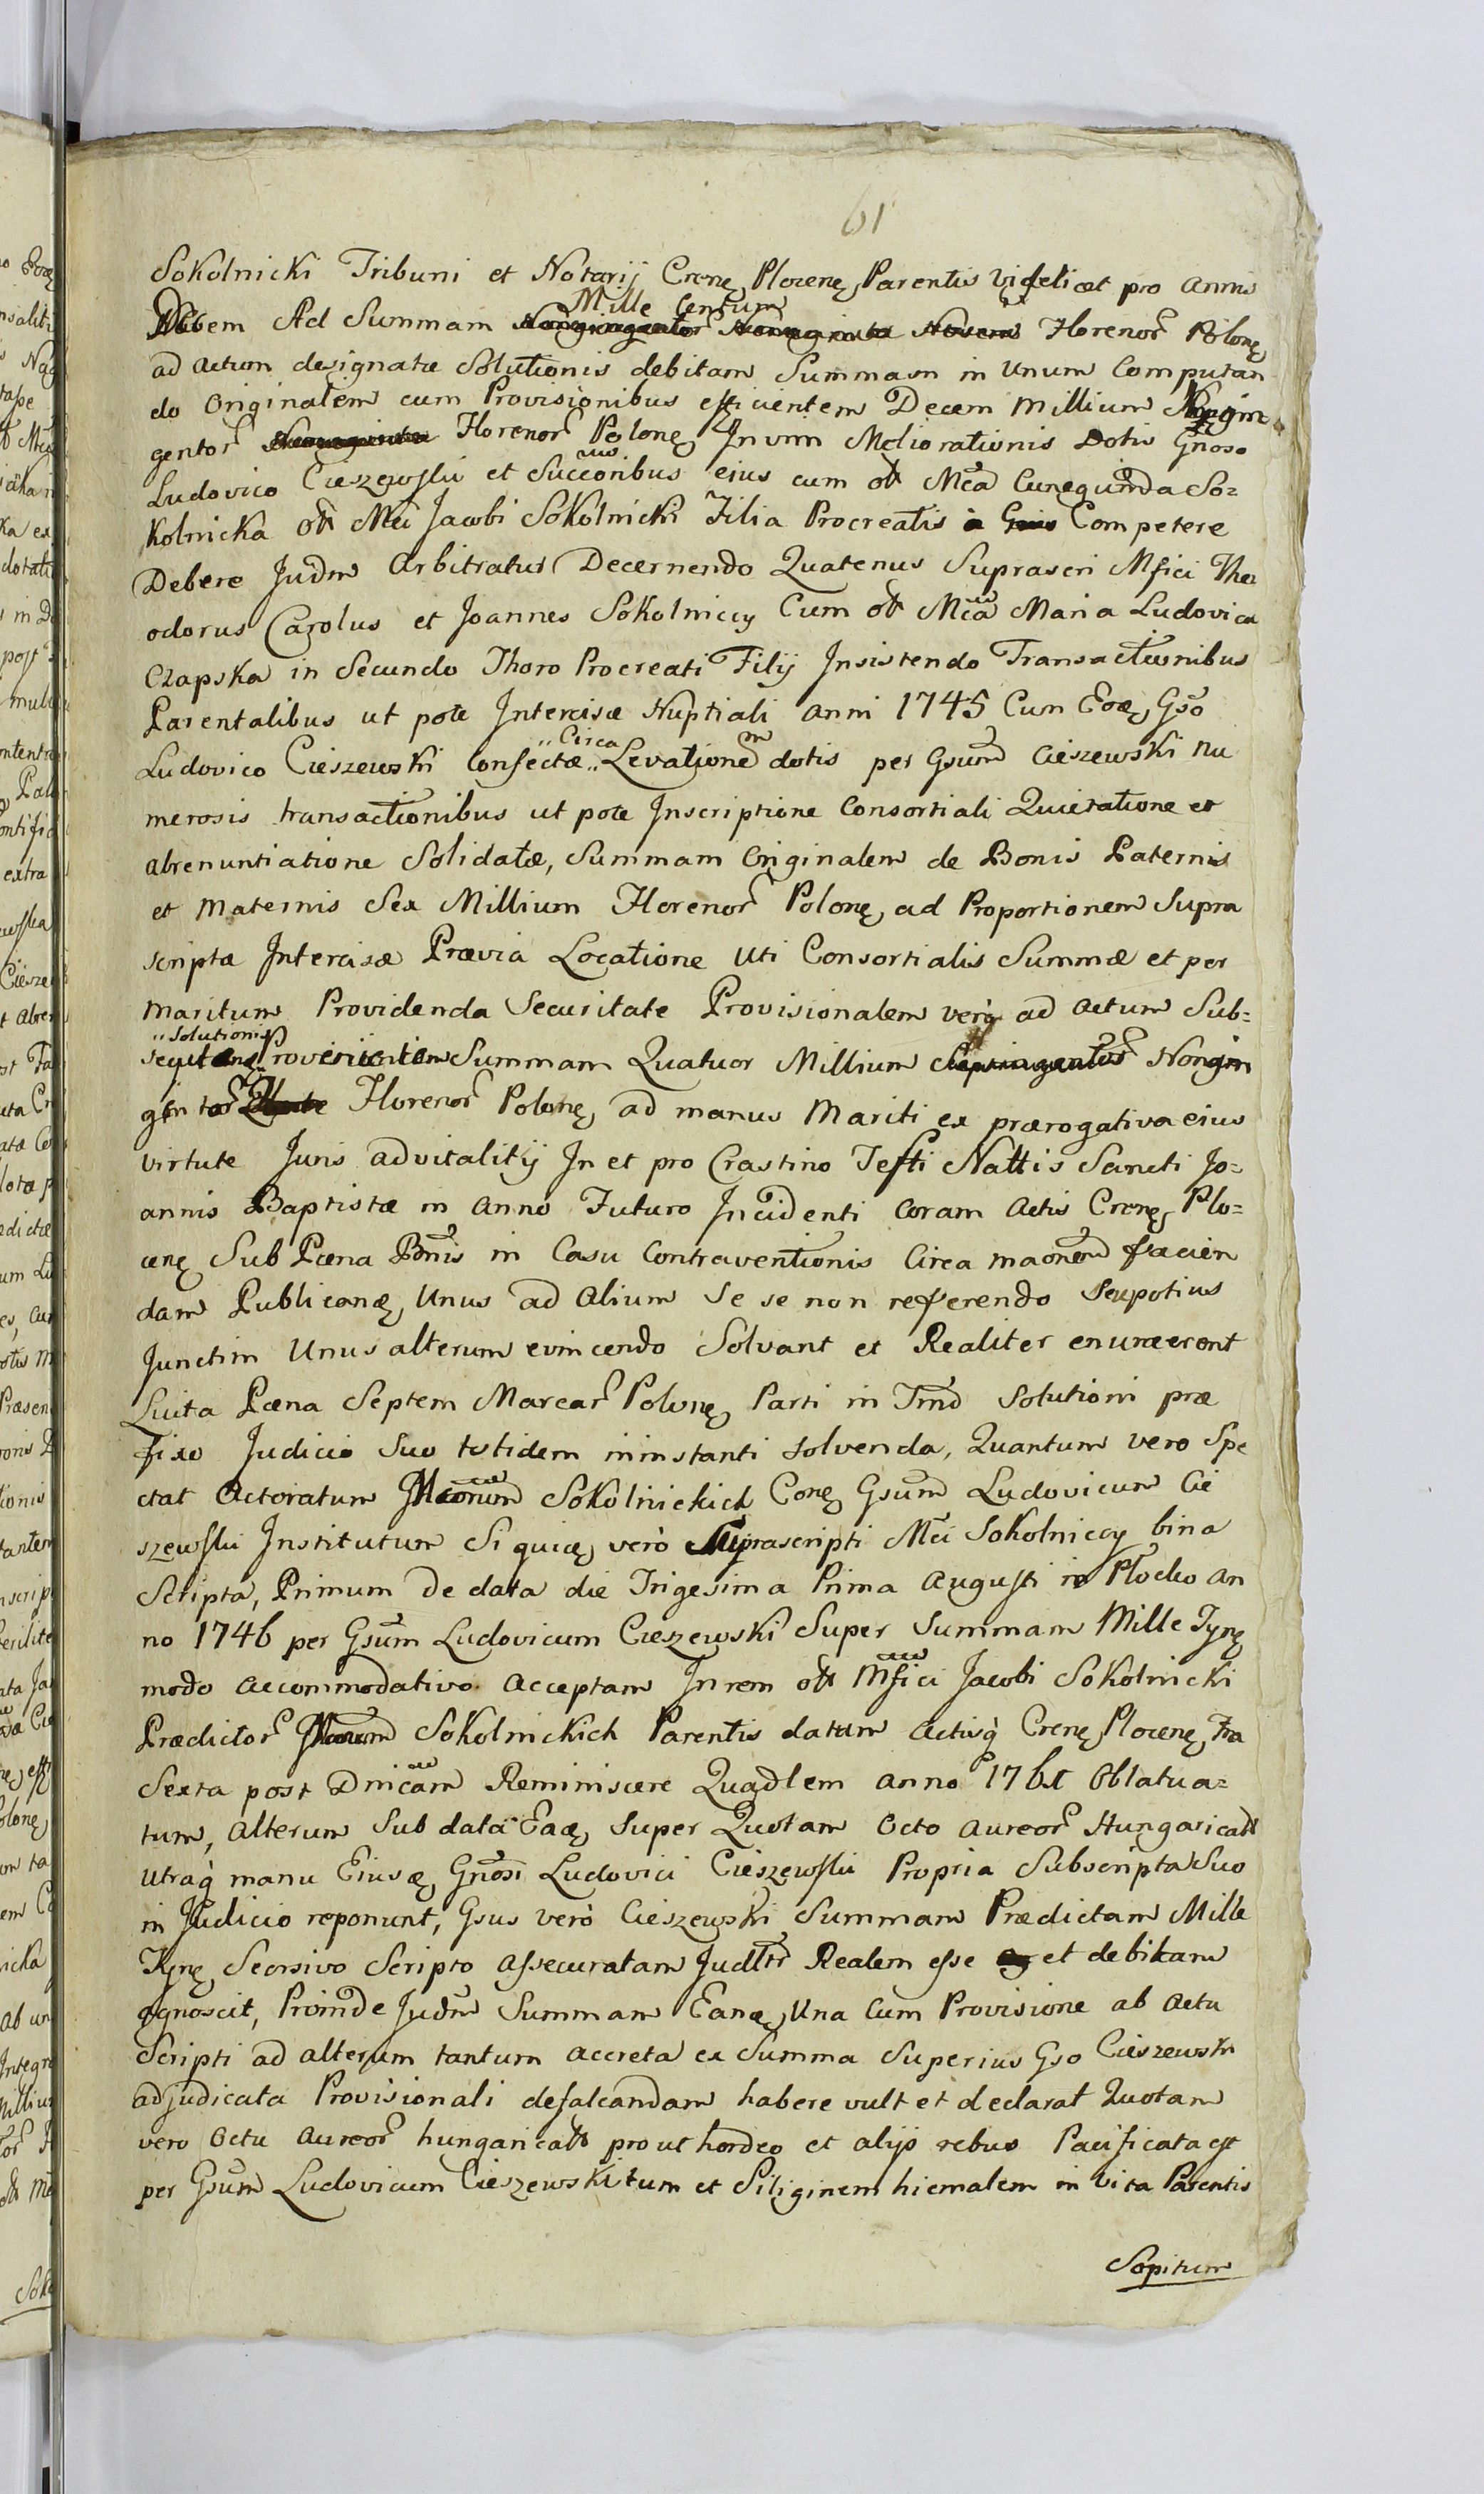 61
Sokolnicki Tribuni et Notarij Crenę Plocenę Parentis videlicet pro annis
Decem Ad Summam Mille Centum Florenor Polonę
ad actum designatæ Solutionis debitam Summam in Unum Computan
do Originalem cum Provisionibus efficientem Decem Millium Nongin
gentor Florenor Polonę In vim Meliorationis Dotis Gnoso
Ludovico Cieszewski et Succoribus eius cum olt Mca Cunegunda So=
kolnicka olt Mci Jacobi Sokolnicki Filia Procreatis Competere
Debere Judm Arbitratur Decernendo Quatenus Suprascri Mfici The
odorus Carolus et Joannes Sokolniccy Cum olt Mca Maria Ludovica
Czapska in Secundo Thoro Procreati Filij Insistendo Transactionibus
Parentalibus ut pote Intercisæ Nuptiali anni 1745 Cum Eoæ, Gso
Ludovico Cieszewski Confectæ Circa Levationem dotis per Gsum Cieszewski nu
merosis transactionibus ut pote Inscriptione Consortiali Quietatione et
abrenuntiatione Solidatæ, Summam Originalem de Bonis Paternis
et Maternis Sex Millium Florenor Polonę ad Proportionem Supra
scriptæ Intercisæ Prævia Locatione uti Consortialis Summæ et per
Maritum Providenda Securitate Provisionalem verò ad actum Sub=
sequtæ Solutionis Provenientem Summam Quatuor Millium Nongin
gentor Florenor Polonę ad manus Mariti ex prærogativa eius
virtute Juris advitalitij In et pro Crastino Festi Nattis Sancti Jo=
annis Baptistæ in Anno Futuro Incidenti coram Actis Crenę Plo=
cenę Sub Pœna Bnis in Casu Contraventionis Circa maonem facien
dam Publicanę Unus ad Alium Se se non referendo Seupotius
Junctim Unus alterum evincendo Solvant et Realiter enumerent
Luita Pœna Septem Marcar Polonę Parti in Tmo Solutioni præ
fixo Judicio Suo totidem ininstanti solvenda, Quantum vero Spe
ctat Actoratum Mcorum Sokolnickich Conę Gsum Ludovicum Cie
szewski Institutum Siquidę verò Suprascripti Mci Sokolniccy bina
Scripta, Primum De data die Trigesima Prima Augusti in Płocko an
no 1746 per Gsum Ludovicum Cieszewski Super Summam Mille Tynę
modo accommodativo acceptam In rem olt Mfici Jacobi Sokolnicki
Prædictor Mcorum Sokolnickich Parentis datum Actisq Crenę Plocenę Fra
Sexta post Dnicam Reminiscere Quadlem anno Oblatua=
tum, alterum Sub data Eaę, Super Quotam Octo aureor Hungaricall
utraq manu Eiusę Gnosi Ludovici Cieszewski Propria Subscripta Suo
in Judicio reponunt, Gsus verò Cieszewski Summam Prædictam Mille
Tynę Seorsivo Scripto assecuratam Judltr Realem esse et debitam
agnoscit, Proinde Judm Summam Eanę, Una Cum Provisione ab Actu
Scripti ad alterum tantum accreta ex Summa Superius Gso Cieszewski
adjudicata Provisionali defalcandam habere vult et declarat Quotam
vero Octu Aureor hungaricall prout hordeo et alijs rebus Pacificata est
per Gsum Ludovicum Cieszewski tum et Siliginem hiemalem in Vita Parentis
Sopitum